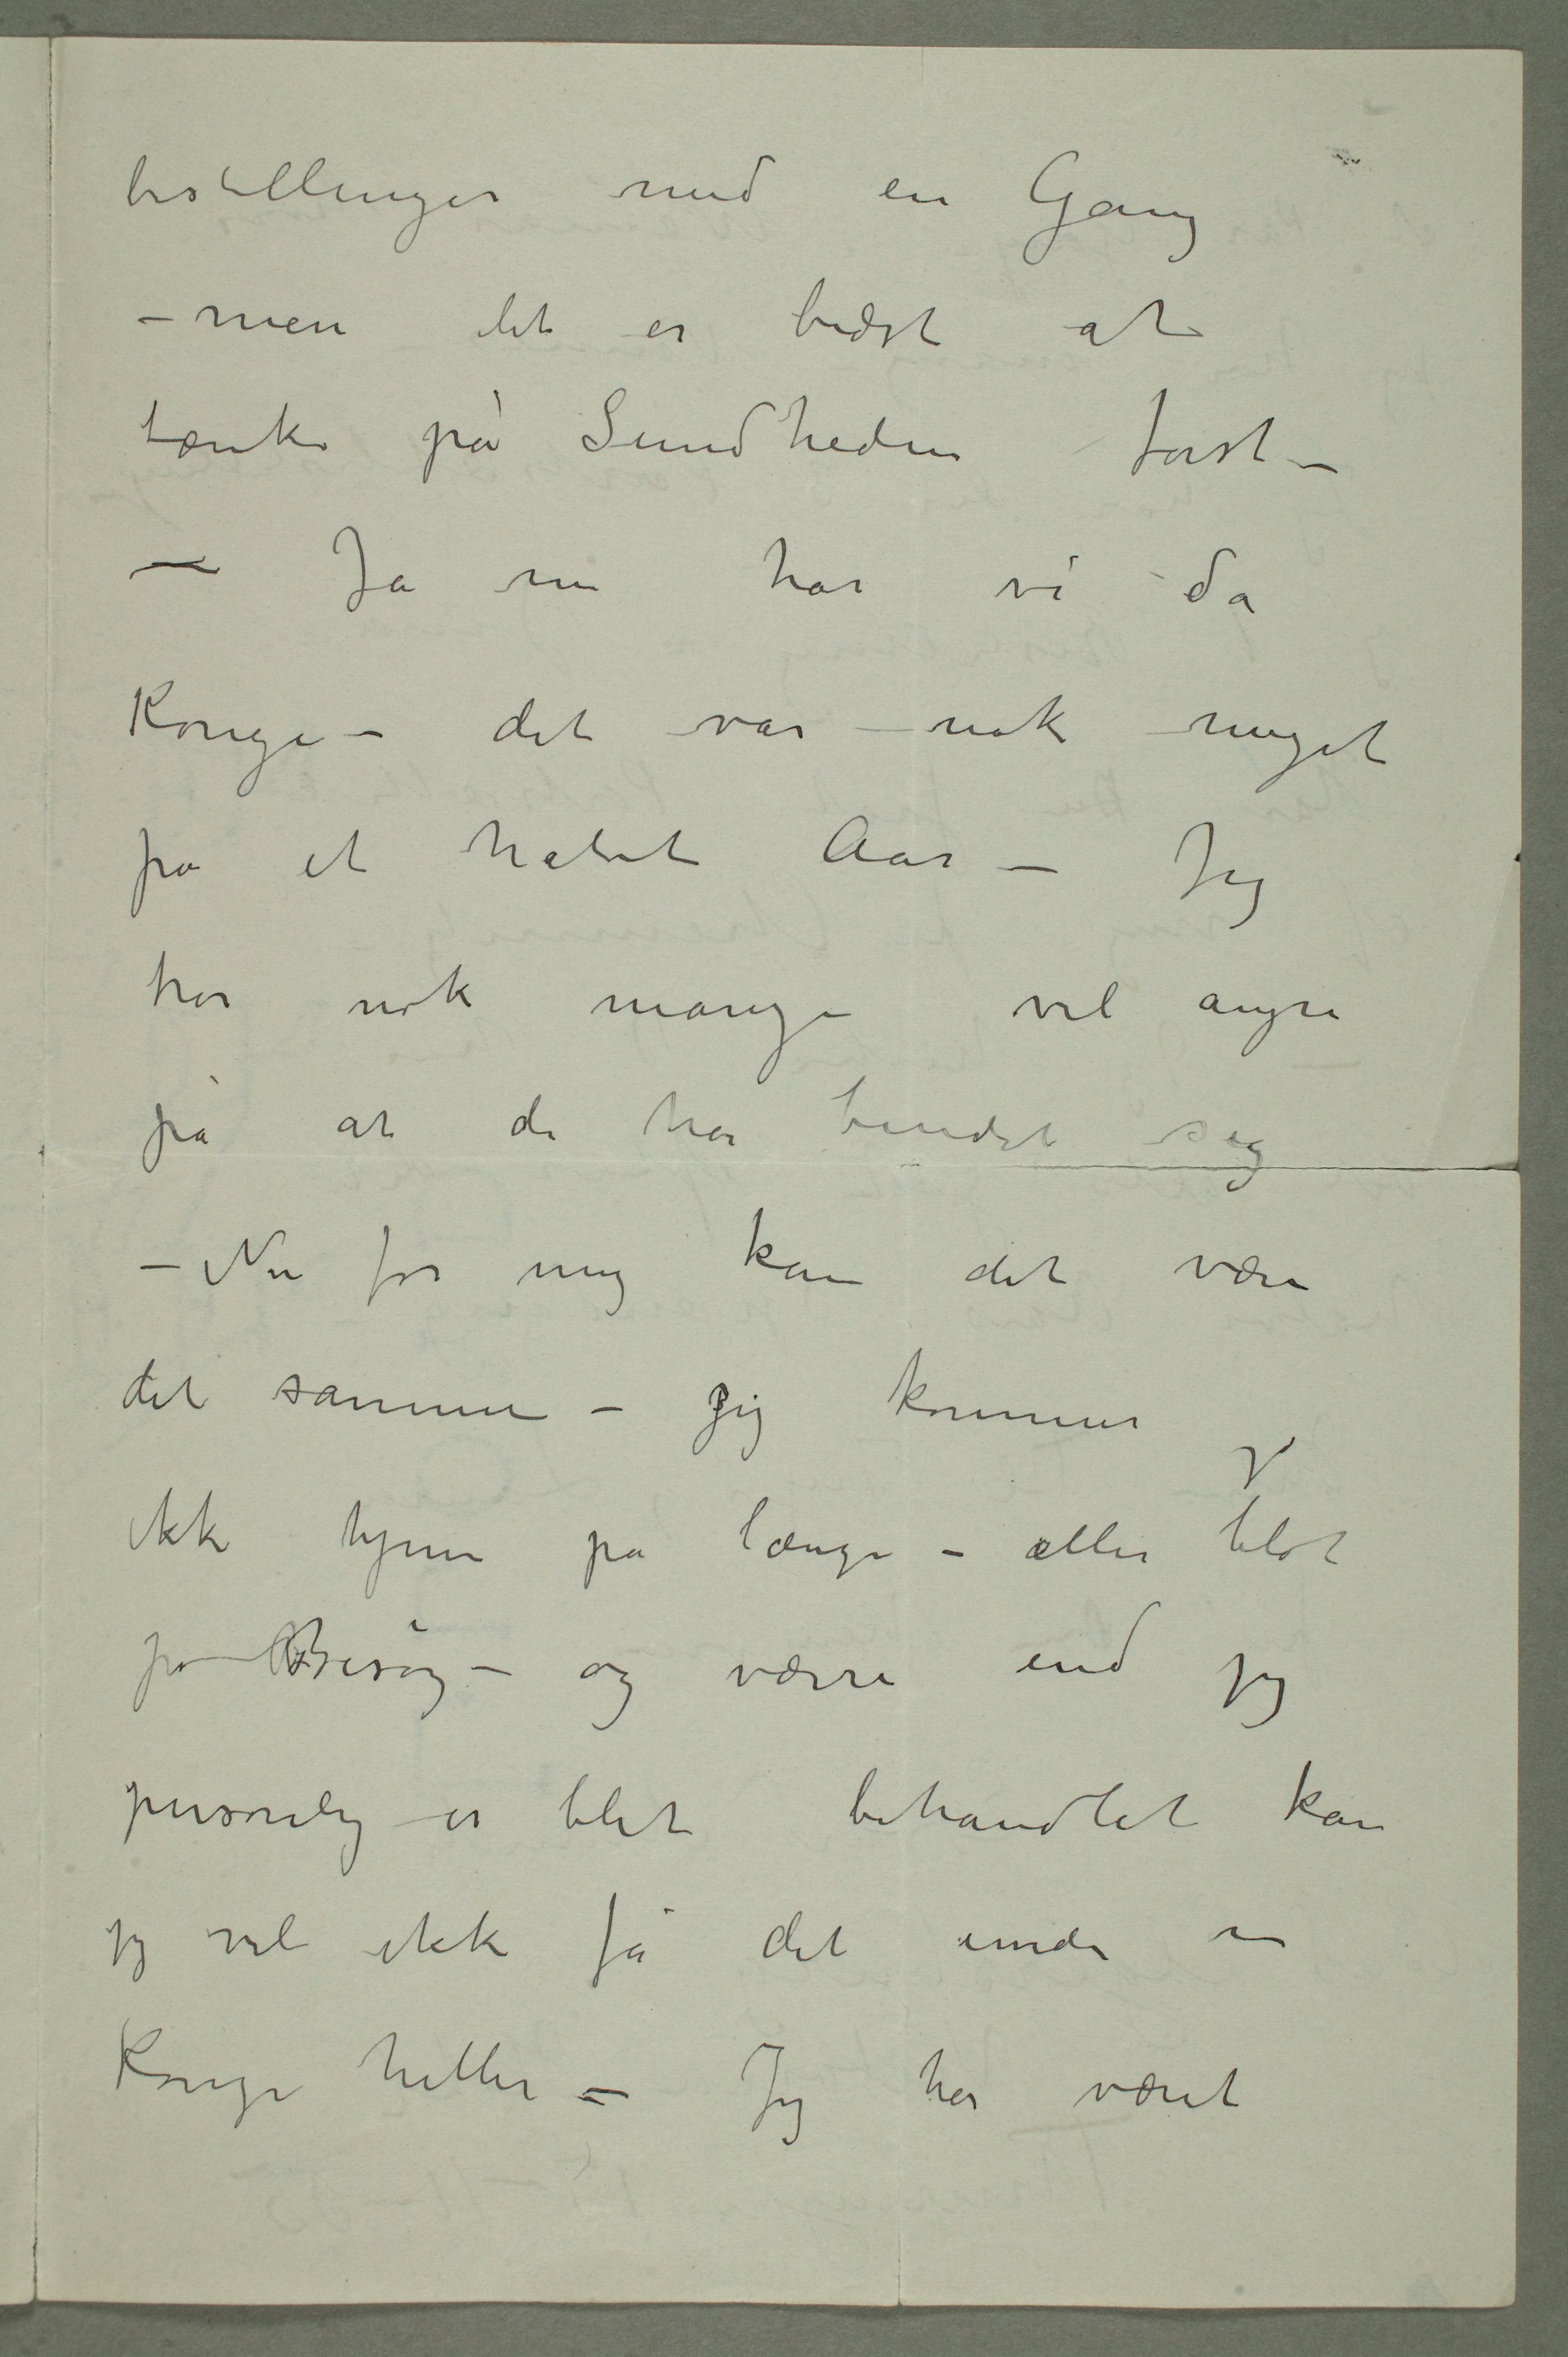 bestillinger med en Gang
– men det er bedst at
tænke på Sundheden først –
– Ja nu har vi da
Konge – det var nok meget
på et halvt Aar – Jeg
tror nok mange vil angre
på at de har bundet sig
– Nu for mig kan det være
det samme – jeg kommer
ikke hjem på længe – eller blot
på Besøg – og værre end jeg
personlig er blet behandlet kan
jeg vel ikke få det under en
Konge heller – Jeg har været